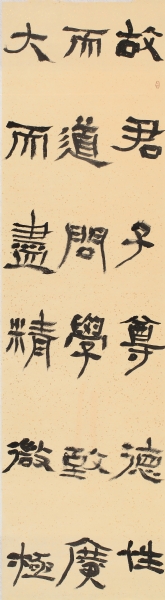 故君子尊德性
而道問學致廣
大而盡精微極